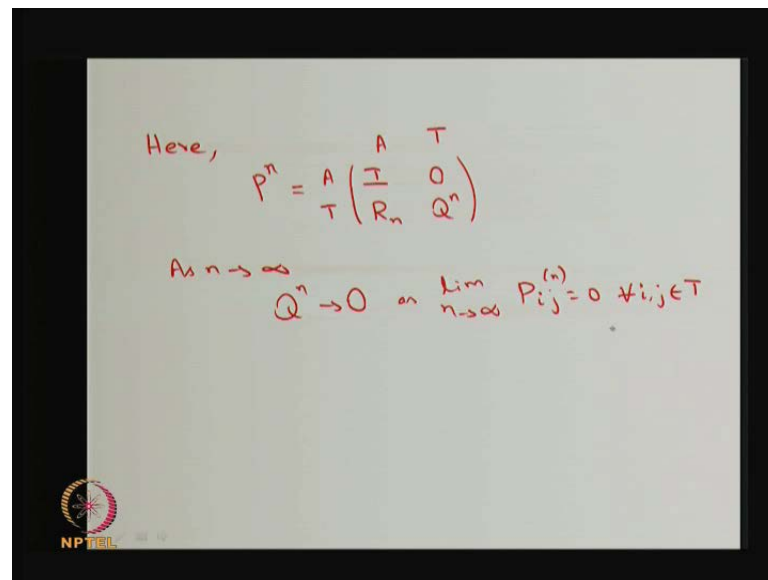 Here,
A T
P^n = A ( I 0
T R_n Q^n )
As n → ∞
Q^n → 0 or lim n→∞ P_{ij}^{(n)} = 0 ∀ i,j ∈ T
NPTEL